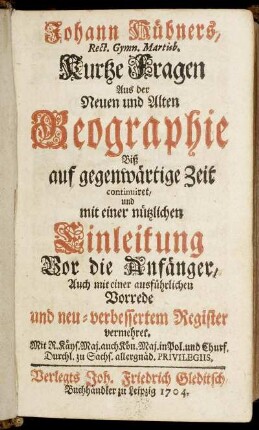 Johann Hübners,
Rect. Gymn. Martisb.
Kurtze Fragen
Aus der
Neuen und Alten
Geographie
Biß
auf gegenwärtige Zeit
continuiret,
und
mit einer nützlichen
Einleitung
Vor die Anfänger,
Auch mit einer ausführlichen
Vorrede
und neu-verbessertem Register
vermehret.
Mit R. Käys. Maj. auch Kön. Maj. in Pol. und Churf.
Durchl. zu Sachs. allergnäd. PRIVILEGIIS.
Verlegts Joh. Friedrich Gleditsch,
Buchhändler zu Leipzig 1704.